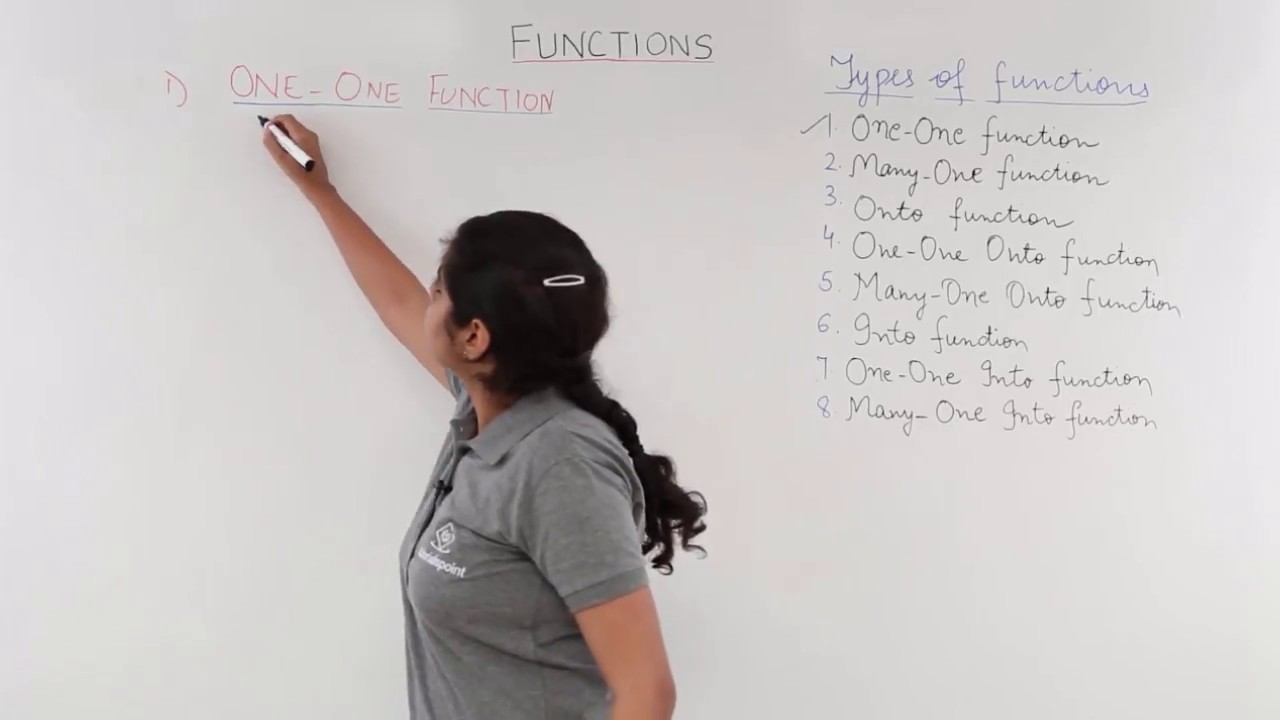 FUNCTIONS
1) ONE-ONE FUNCTION
Types of functions
1. One-One function
2. Many-One function
3. Onto function
4. One-One Onto function
5. Many-One Onto function
6. Into function
7 One-One Into function
8 Many-One Into function